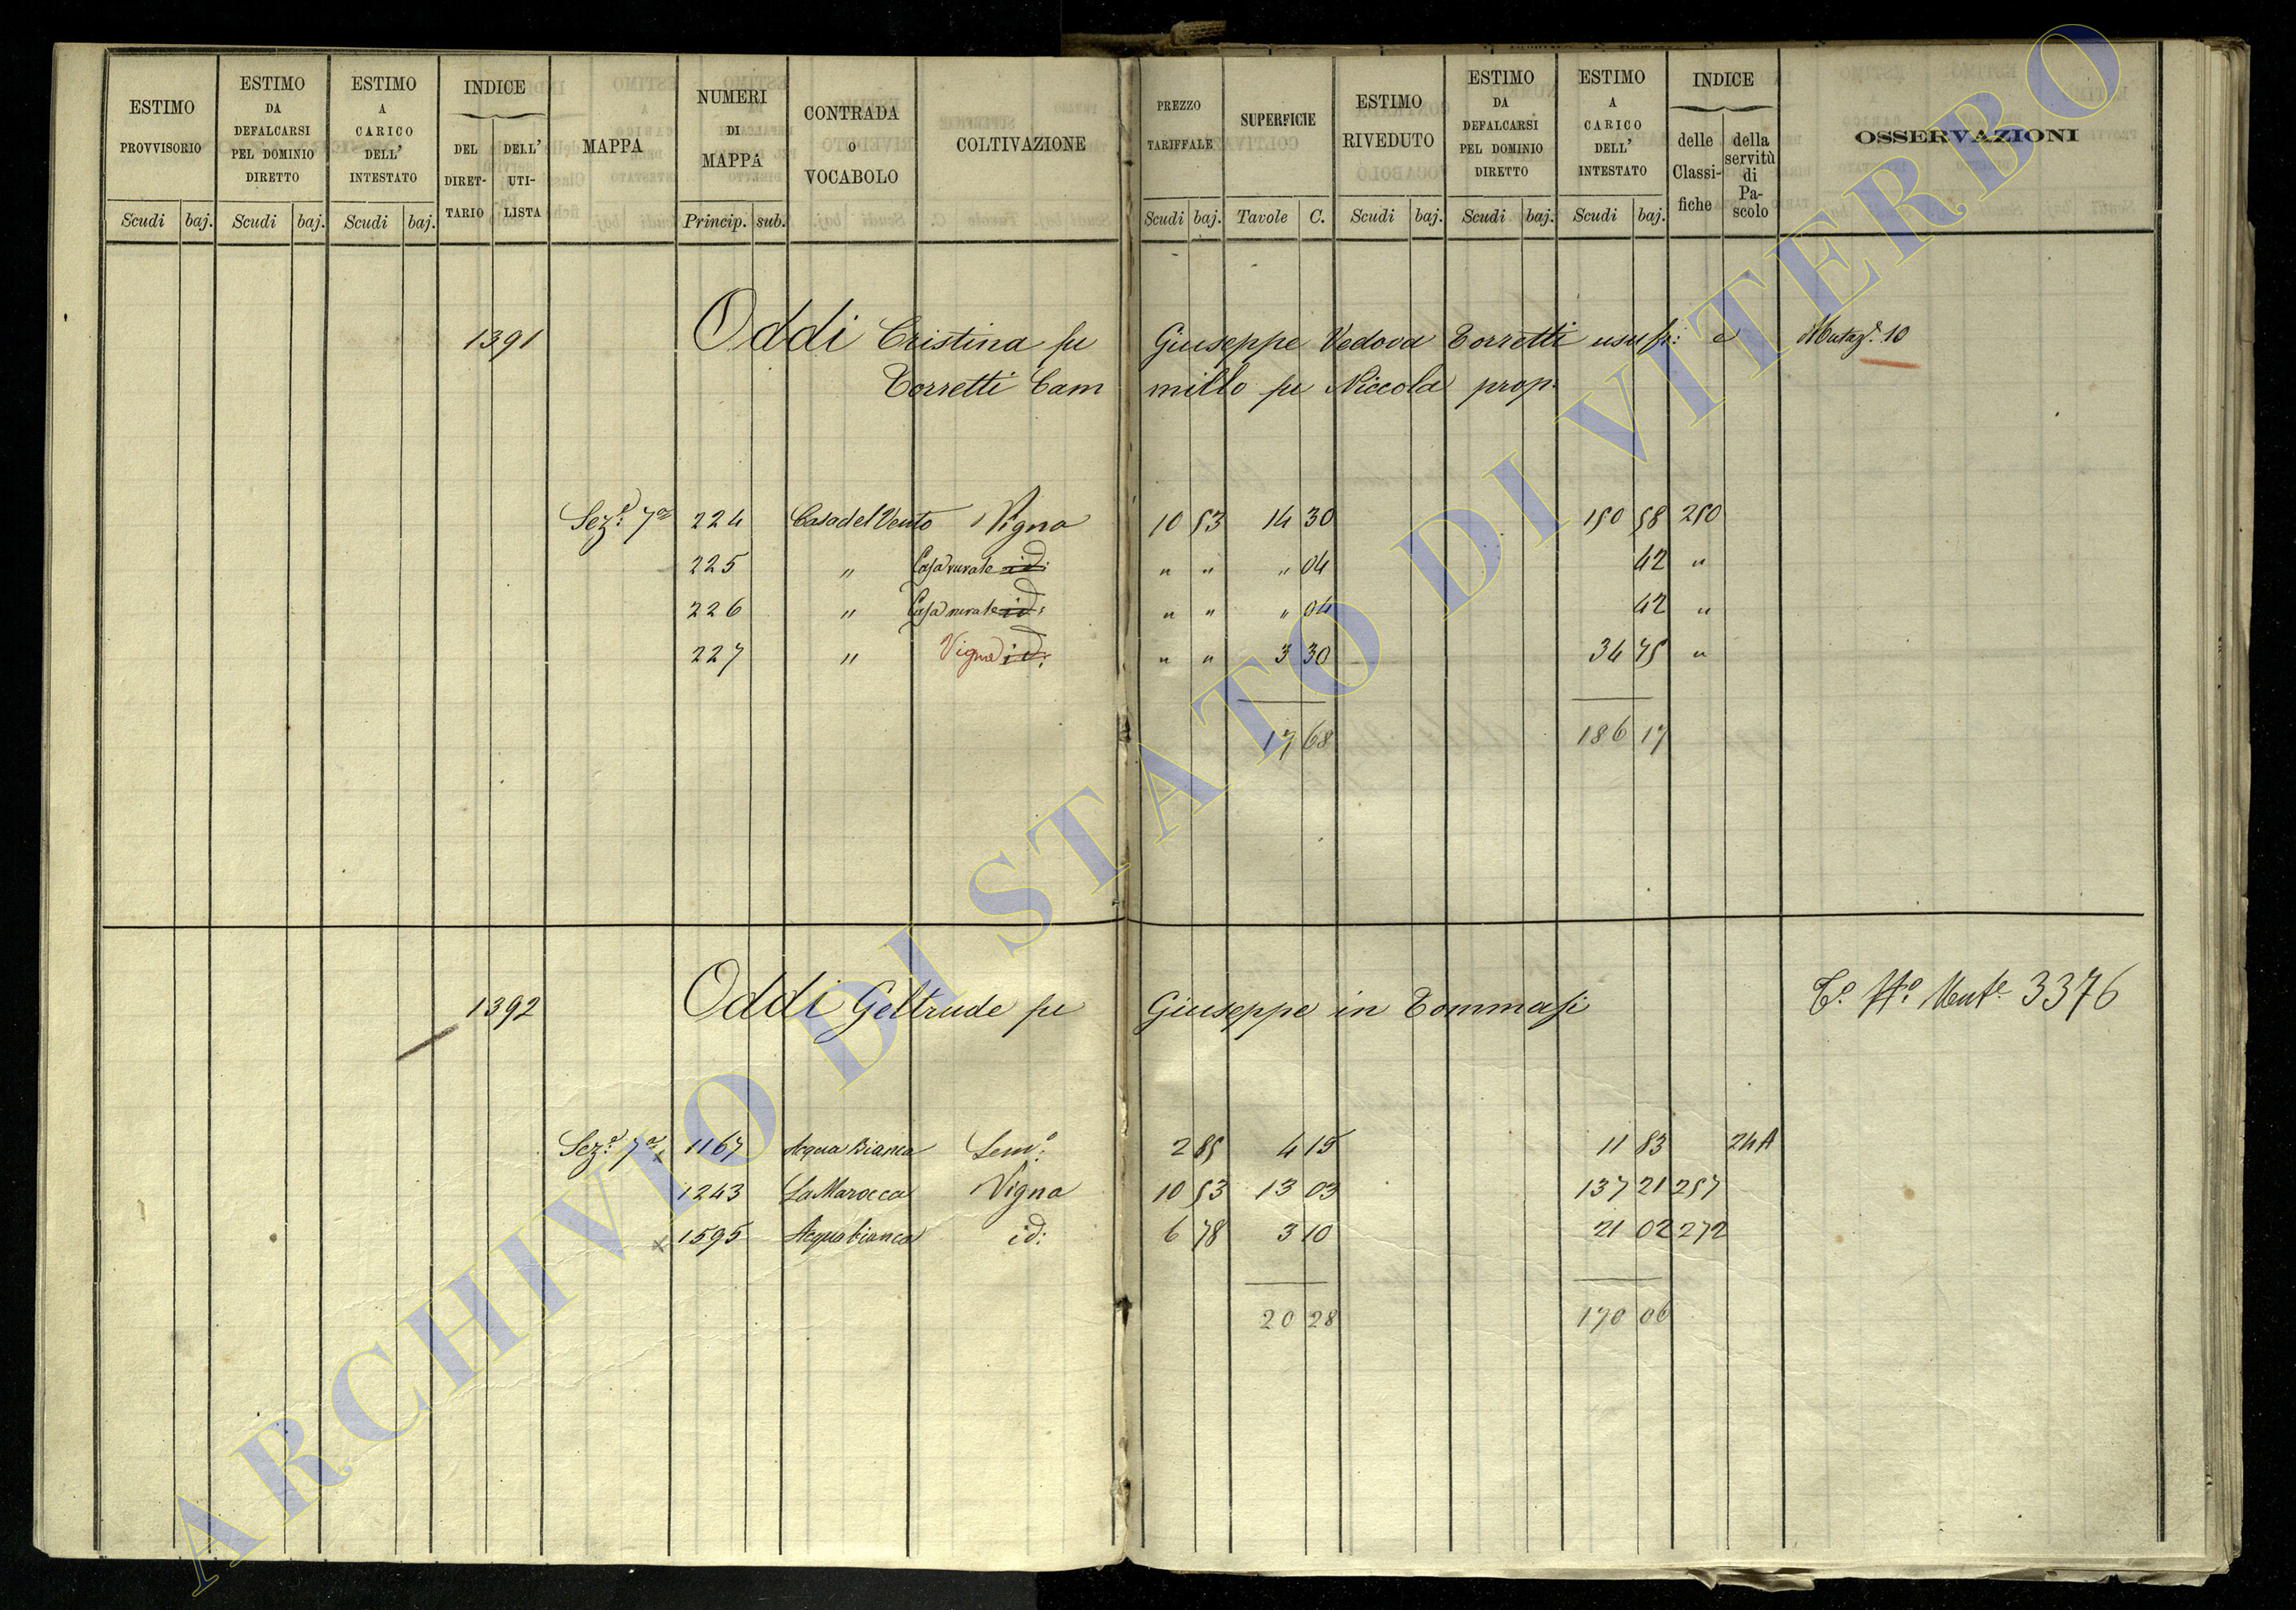 ESTIMO PROVVISORIO
ESTIMO DA DEFALCARSI PEL DOMINIO DIRETTO
ESTIMO A CARICO DELL' INTESTATO
INDICE
DEL DIRET-TARIO
DELL' UTI-LISTA
MAPPA
NUMERI DI MAPPA
CONTRADA O VOCABOLO
COLTIVAZIONE
PREZZO TARIFFALE
SUPERFICIE
ESTIMO RIVEDUTO
ESTIMO DA DEFALCARSI PEL DOMINIO DIRETTO
ESTIMO A CARICO DELL' INTESTATO
INDICE
delle Classi-fiche
della servitù di Pa-scolo
OSSERVAZIONI
Scudi baj. Scudi baj. Scudi baj. Princip. sub. Scudi baj. Tavole C. Scudi baj. Scudi baj. Scudi baj.
1391 Oddi Cristina fu Giuseppe Vedova Torretti usufr: e Mutaz.e 10
Torretti Cam millo fu Niccola prop.
Sez.e 7a 224 Casa del Vento Vigna 10 53 14 30 150 58 250
225 " Casa rurale id: " " " 04 42 "
226 " Casa rurale id: " " " 04 42 "
227 " Vigna id: " " 3 30 34 75 "
17 68 186 17
1392 Oddi Geltrude fu Giuseppe in Tommasi 3376
Sez.e 7a x 1167 Acqua Bianca Sem.o: 2 85 4 15 11 83 24A
1243 La Marocca Vigna 10 53 13 03 137 21 257
x 1595 Acqua bianca id: 6 78 3 10 21 02 272
20 28 170 06
ARCHIVIO DI STATO DI VITERBO